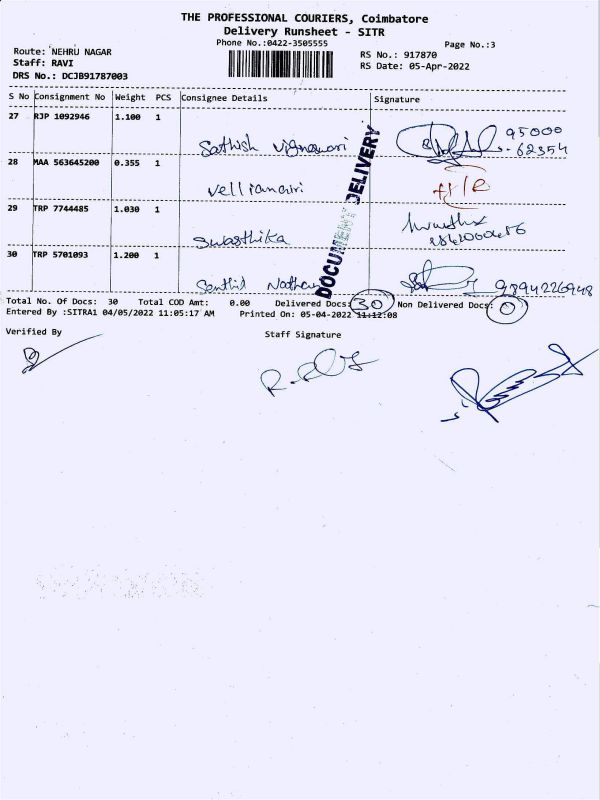 THE PROFESSIONAL COURIERS, Coimbatore
Delivery Runsheet - SITR
Phone No.:0422-3505555
Page No.:3
Route: NEHRU NAGAR
RS No.: 917870
Staff: RAVI
RS Date: 05-Apr-2022
DRS No.: DCJB91787003
S No Consignment No Weight PCS Consignee Details Signature
27 RJP 1092946 1.100 1
Sathish 95000
62354
28 MAA 563645200 0.355 1
29 TRP 7744485 1.030 1
Swasthika
30 TRP 5701093 1.200 1
Senthil Nathan 9894226948
DOCUMENT DELIVERY
Total No. Of Docs: 30 Total COD Amt: 0.00 Delivered Docs: 30 Non Delivered Docs: 0
Entered By :SITRA1 04/05/2022 11:05:17 AM Printed On: 05-04-2022 11:12:08
Verified By
Staff Signature